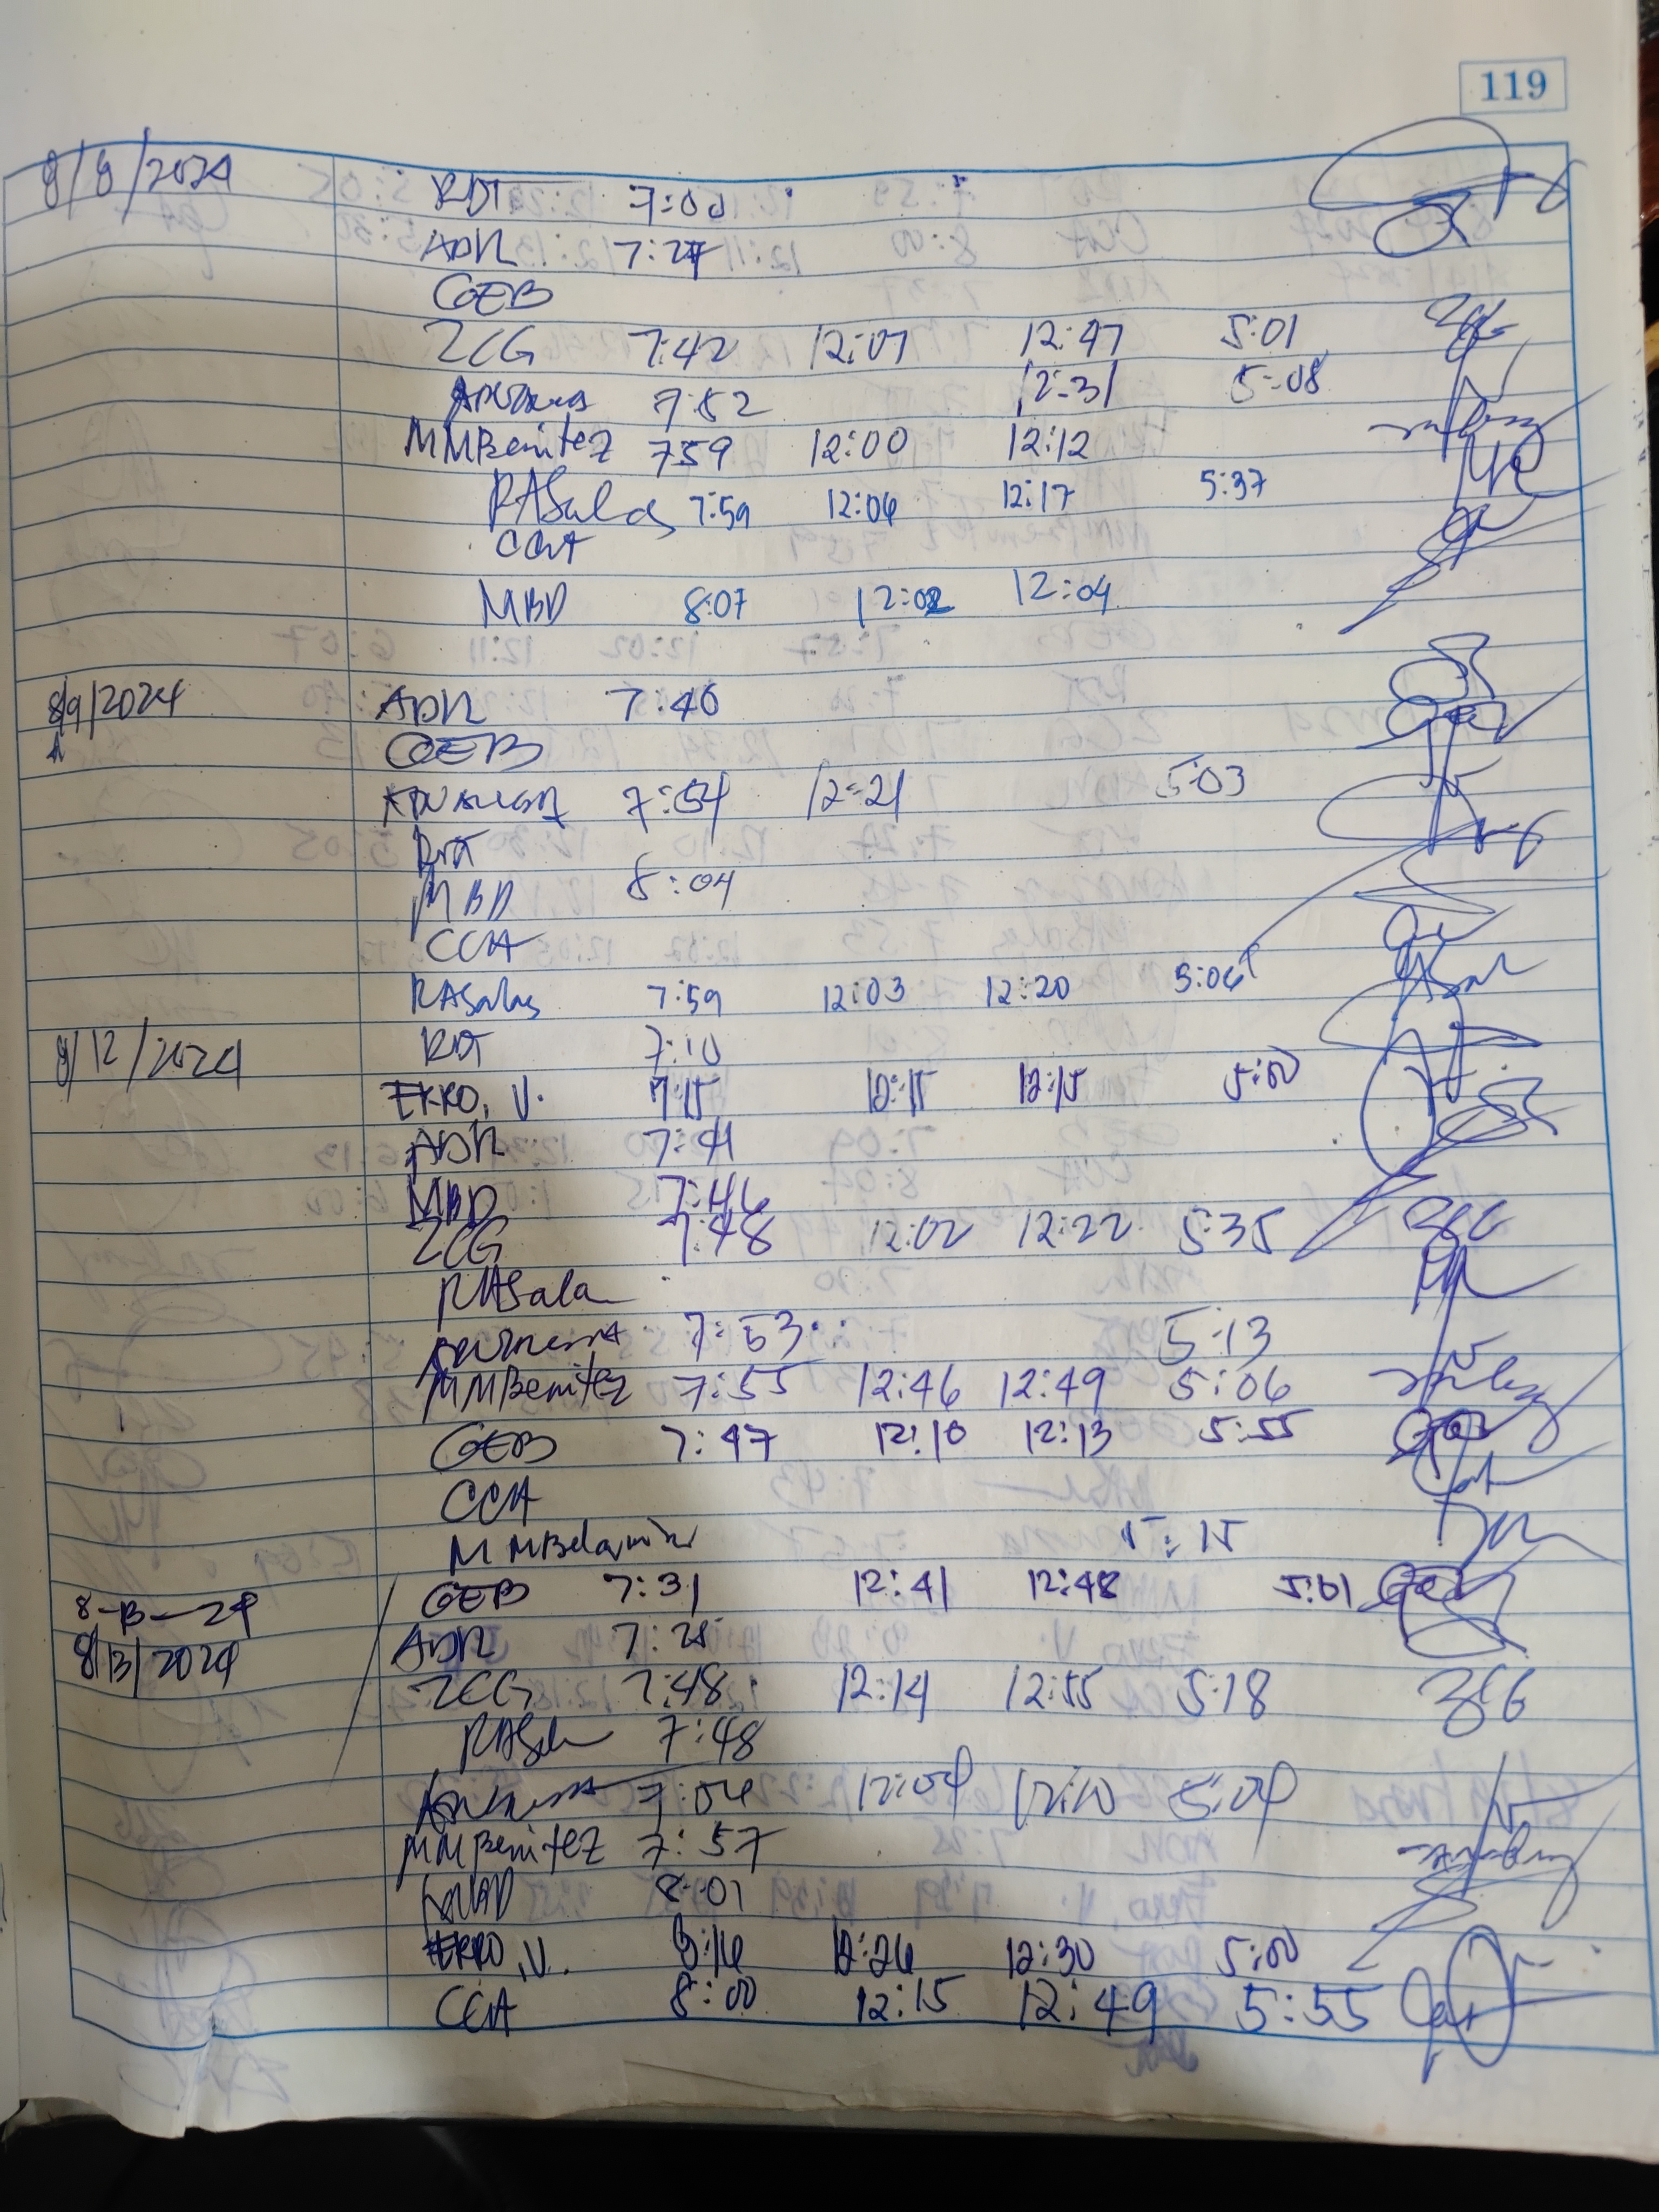 119
8/8/2024 RDT 7:00
ADR 7:27
GEB
ZCG 7:42 12:07 12:47 5:01
7:52 12:31 5:08
MMBenitez 7:59 12:00 12:12
RASalas 7:59 12:06 12:17 5:37
CCA
MBD 8:07 12:02 12:04
8/9/2024 ADR 7:40
GEB
7:54 12:21 5:03
RDT
MBD 8:04
CCA
RASalas 7:59 12:03 12:20 5:06
8/12/2024 RDT 7:10
FERRO, V. 7:15 12:15 12:15 5:00
ADR 7:41
MBD 7:46
ZCG 7:48 12:02 12:22 5:35
RASala
7:53 5:13
MMBenitez 7:55 12:46 12:49 5:06
GEB 7:47 12:10 12:13 5:55
CCA
15:15
8-13-24 GEB 7:31 12:41 12:48 5:01
8/13/2024 ADR 7:25
ZCG 7:48 12:14 12:55 5:18 ZCG
7:48
7:04 12:04 12:10 5:04
MMBenitez 7:57
8:01
FERRO, V. 8:16 12:26 12:30 5:00
CCA 8:00 12:15 12:49 5:55